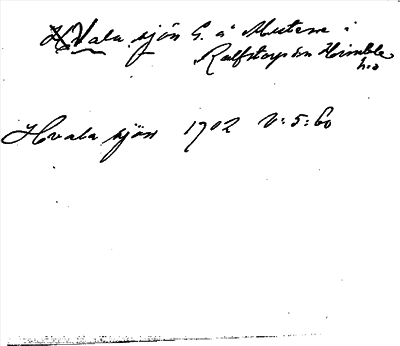 Hvala sjön G. å Mutern i
Ralfstorps sn Himble
h:d
Hvala sjön 1702 V:5:60